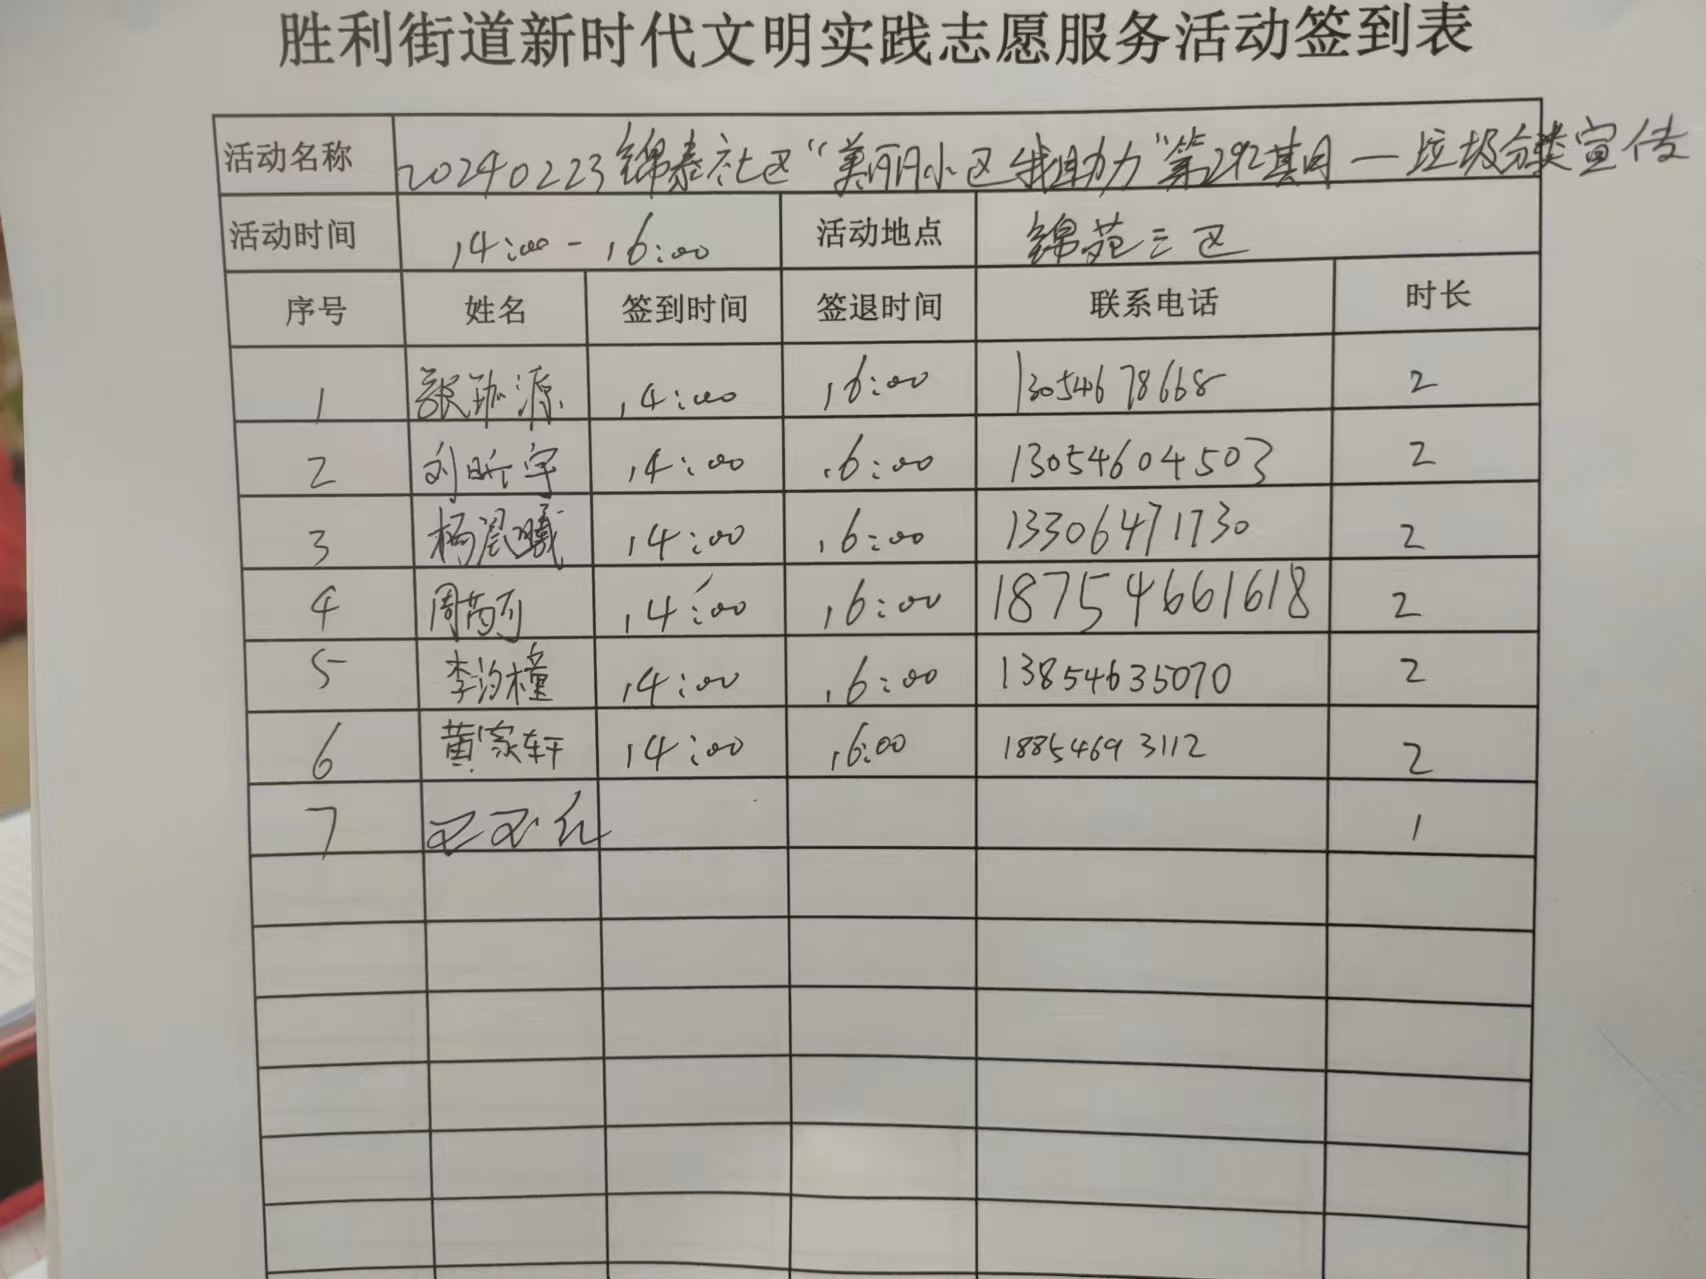 胜利街道新时代文明实践志愿服务活动签到表
活动名称 20240223锦泰社区“美丽小区我助力”第292期—垃圾分类宣传
活动时间 14:00-16:00 活动地点 锦苑三区
序号 姓名 签到时间 签退时间 联系电话 时长
1 张珈源 14:00 16:00 13054678668 2
2 刘昕宇 14:00 16:00 13054604503 2
3 杨晨曦 14:00 16:00 13306471730 2
4 周芮可 14:00 16:00 18754661618 2
5 李汐橦 14:00 16:00 13854635070 2
6 黄家轩 14:00 16:00 18854693112 2
7 1